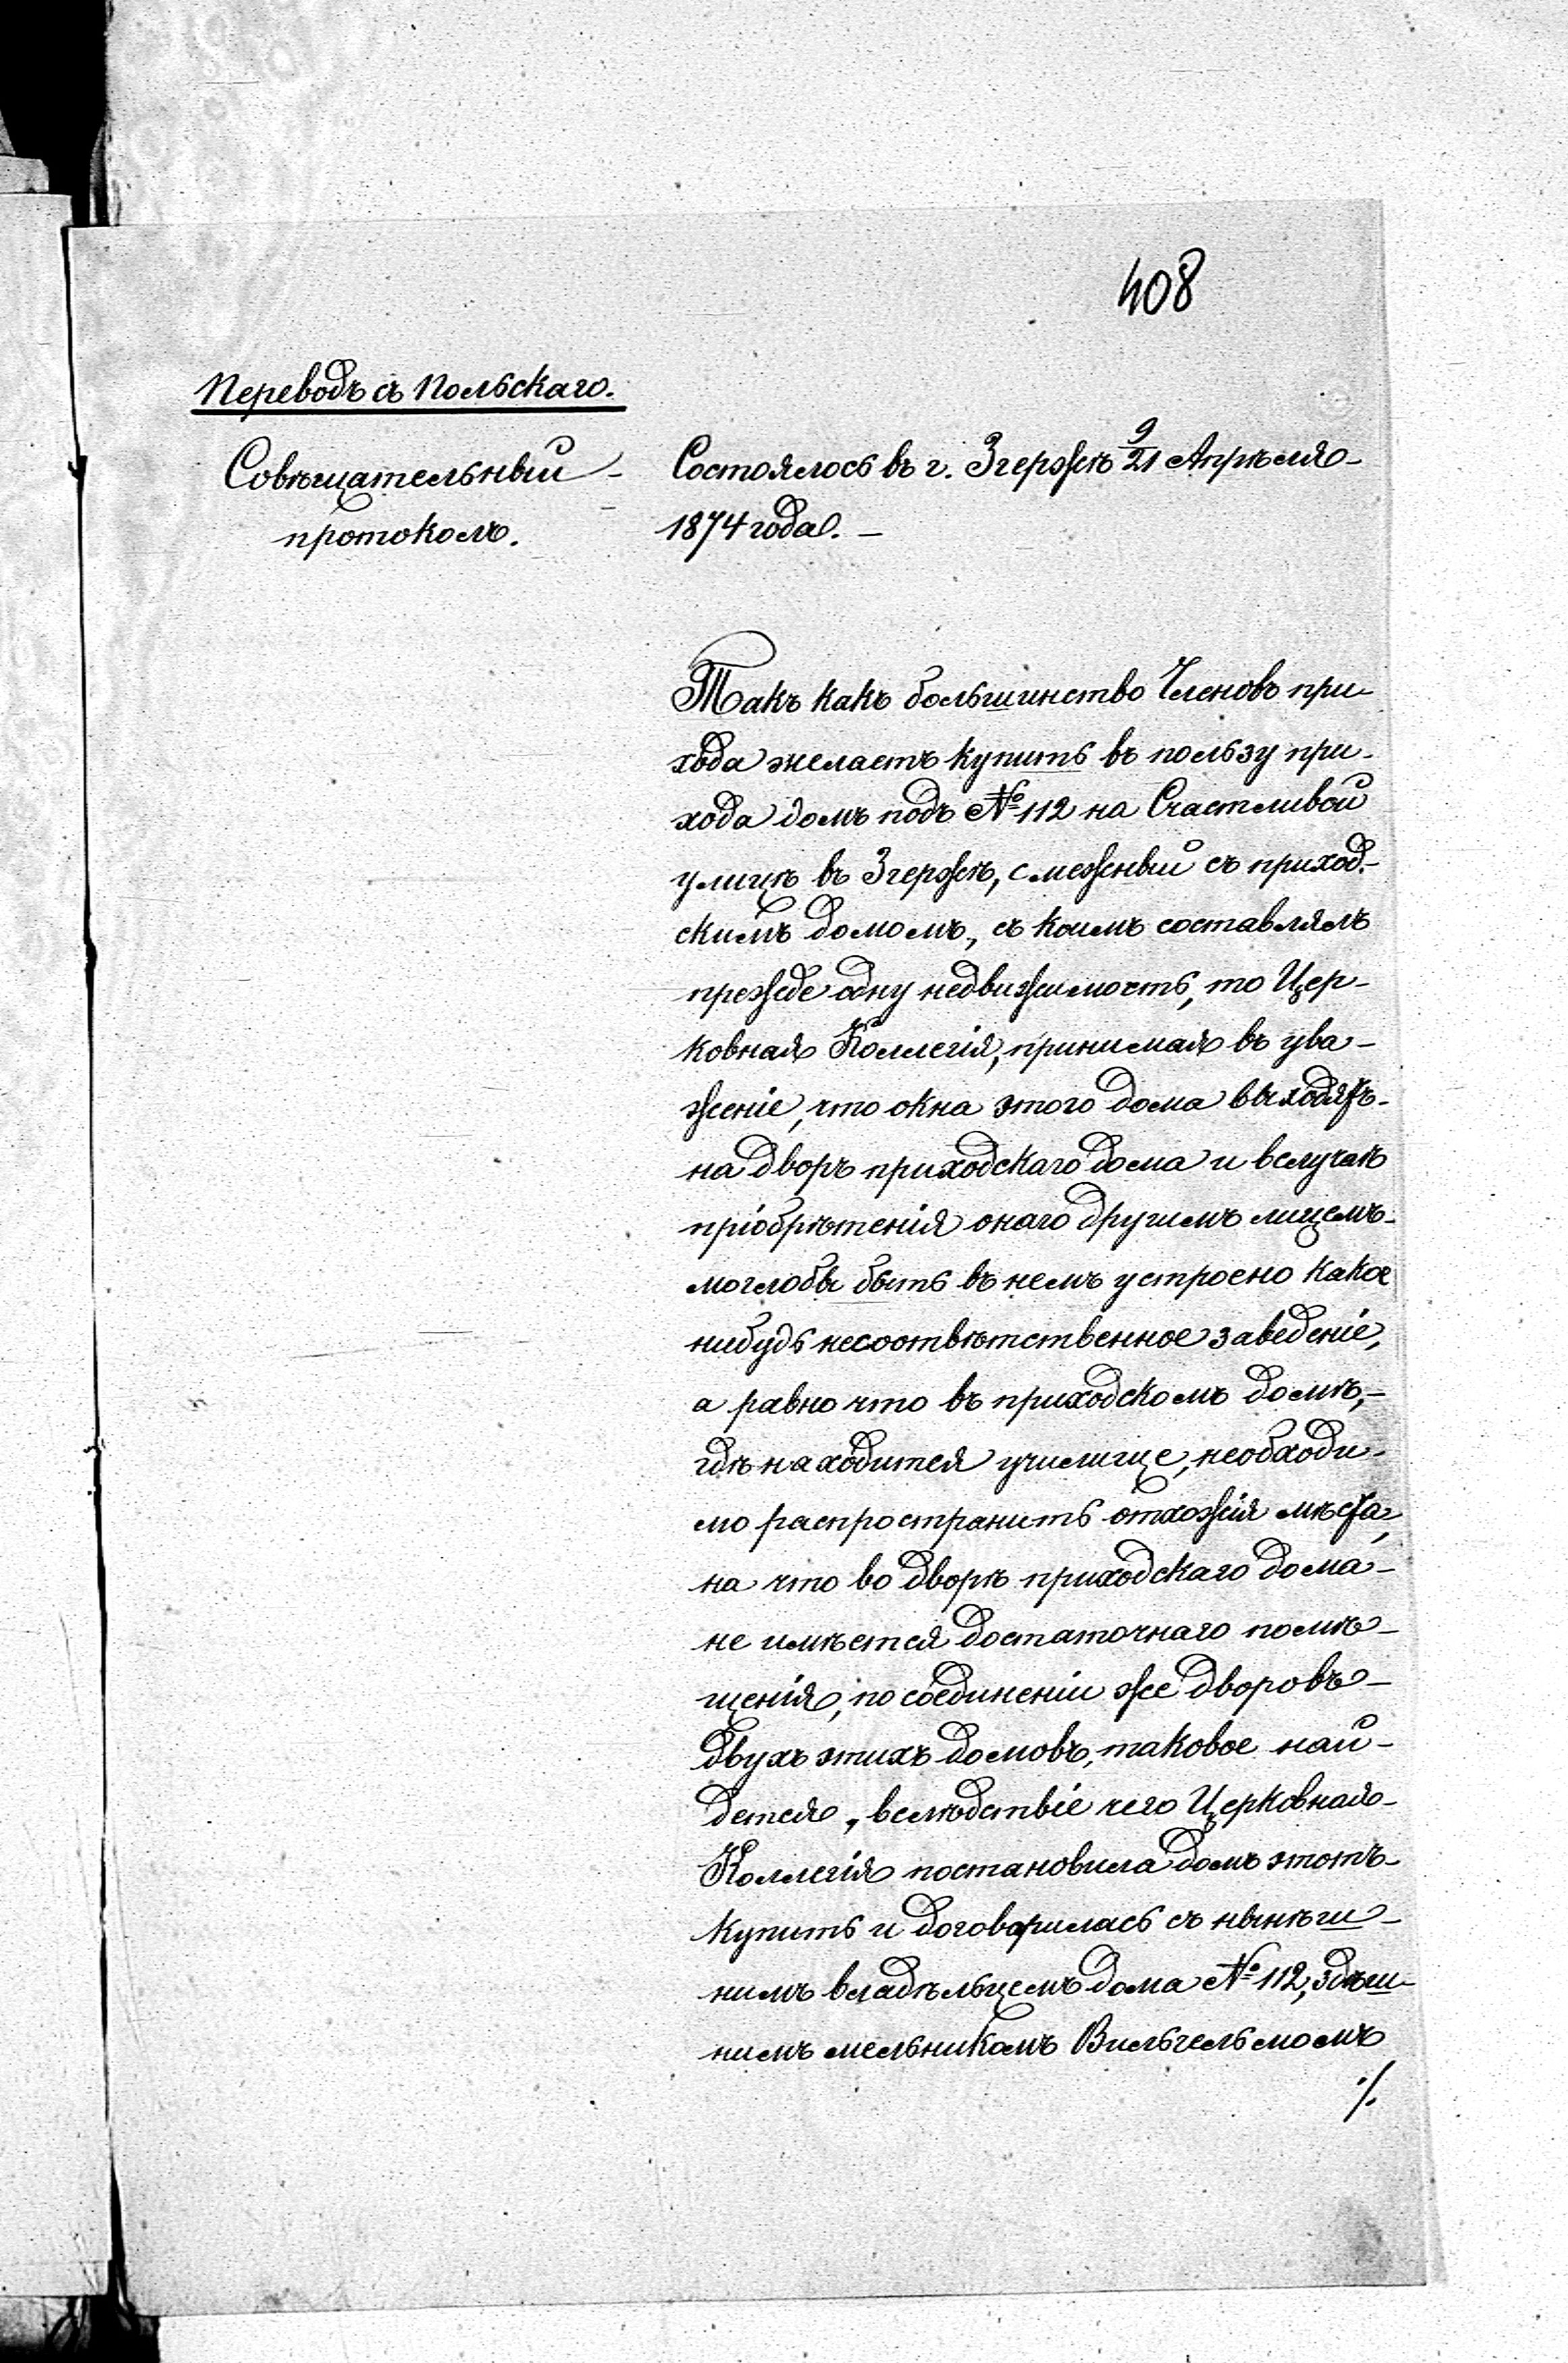 408
Переводъ съ Польскаго.
Совѣщательный
протоколъ.
Состоялось въ г. Згержѣ 9/21 Апрѣля
1874 года. —
Такъ какъ большинство Членовъ при-
хода желаетъ купить въ пользу при-
хода домъ подъ № 112 на Счастливой
улицѣ въ Згержѣ, смежный съ приход-
скимъ домомъ, съ коимъ составлялъ
прежде одну недвижимость, то Цер-
ковная Коллегія, принимая въ ува-
женіе, что окна этого дома выходятъ
на дворъ приходскаго дома и вслучаѣ
пріобрѣтенія онаго другимъ лицемъ
моглобы быть въ немъ устроено какое
нибудь несоотвѣтственное заведеніе,
а равно что въ приходскомъ домѣ, —
гдѣ находится училище, необходи-
мо распространить отхожія мѣста,
на что во дворѣ приходскаго дома —
не имѣется достаточнаго помѣ-
щенія, по соединеніи же дворовъ —
двухъ этихъ домовъ, таковое най-
дется, вслѣдствіе чего Церковная
Коллегія постановила домъ этотъ
купить и договорилась съ нынѣш-
нимъ владѣльцемъ дома № 112, здѣш-
нимъ мельникомъ Вильгельмомъ
./.